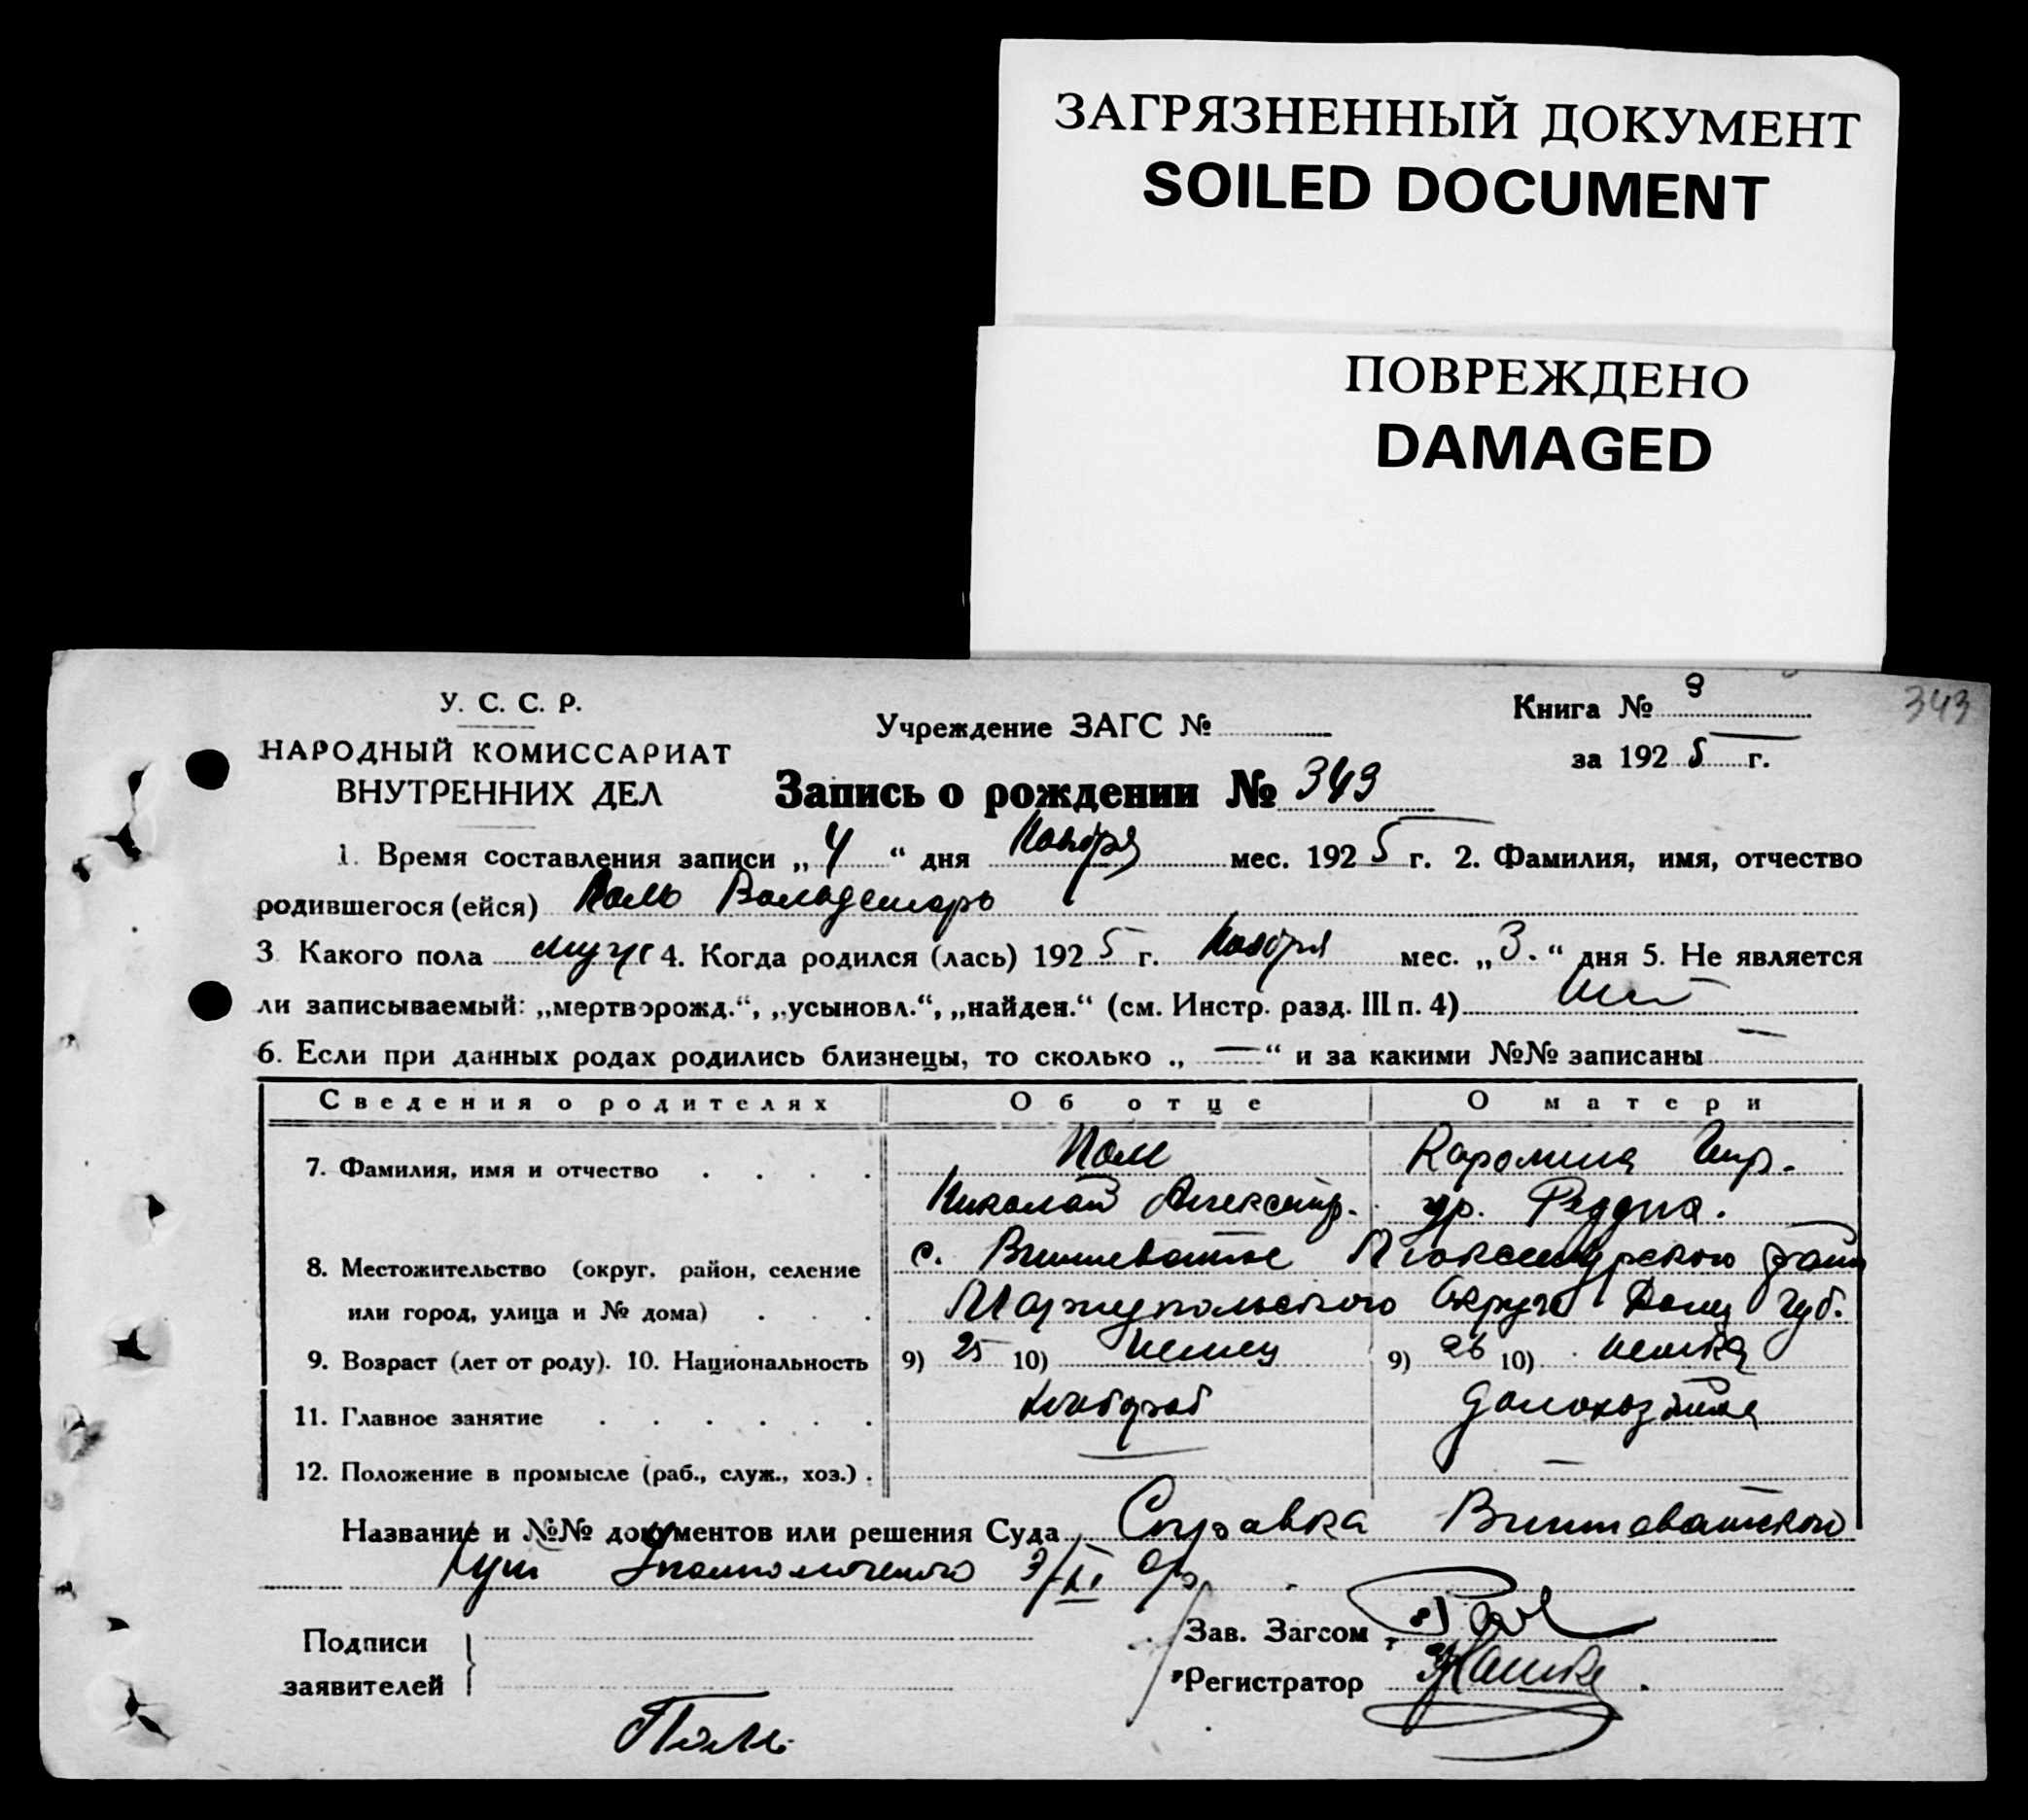 ЗАГРЯЗНЕННЫЙ ДОКУМЕНТ
SOILED DOCUMENT
ПОВРЕЖДЕНО
DAMAGED
343
У. С. С. Р.
НАРОДНЫЙ КОМИССАРИАТ
ВНУТРЕННИХ ДЕЛ
Учреждение ЗАГС №
Книга №
за 1925 г.
Запись о рождении № 343
1. Время составления записи „4“ дня Ноября мес. 1925 г. 2. Фамилия, имя, отчество
родившегося (ейся) Поль Вольдемарь
3 Какого пола муж 4. Когда родился (лась) 1925 г. Ноября мес. „3.“ дня 5. Не является
ли записываемый: „мертворожд.“, „усыновл.“, „найден.“ (см. Инстр. разд. III п. 4) Нет
6. Если при данных родах родились близнецы, то сколько „ — “ и за какими №№ записаны —
Сведения о родителях Об отце О матери
7. Фамилия, имя и отчество . . . . Поль Каролина
Николай Александр. ур.
8. Местожительство (округ, район, селение с. Вишневатое
или город, улица и № дома) . . . Мариупольского Округа Донец Губ.
9. Возраст (лет от роду). 10. Национальность 9) 25 10) Немец 9) 26 10) немка
11. Главное занятие . . . . . . хлебороб домохозяйка
12. Положение в промысле (раб., служ., хоз.) . — —
Название и №№ документов или решения Суда Справка Вишневатского
Уполномоченого 3/XI
Подписи
заявителей
Зав. Загсом
Регистратор
Поль